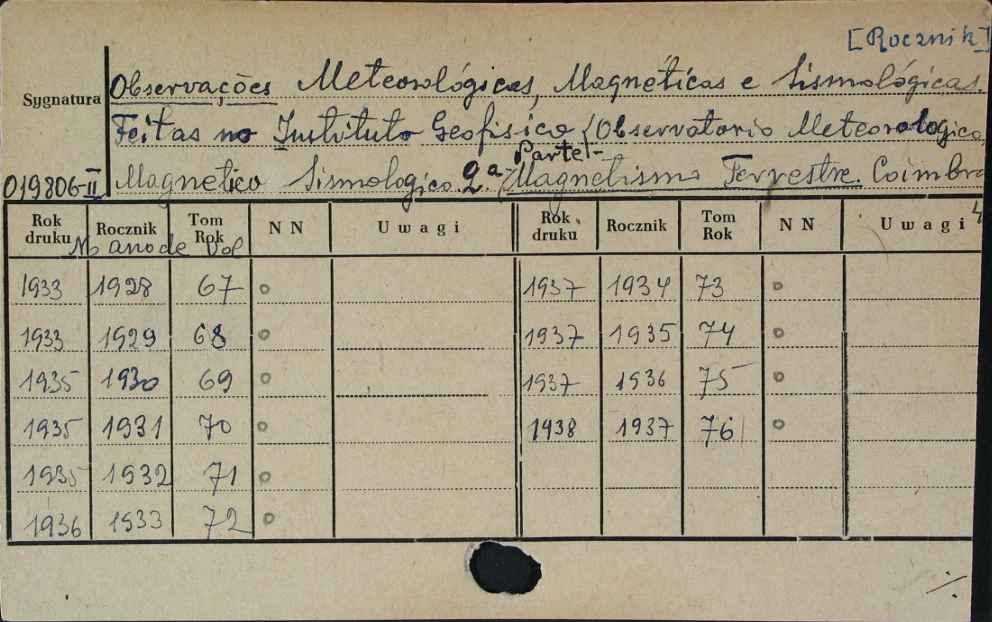 [Rocznik]
Observações Meteorológicas, Magnéticas e Sismológicas.
Sygnatura
Feitas no Instituto Geofisico (Observatorio Meteorologico,
Parte I-
019806-II Magnetico Sismologico. 2ª. Magnetismo Terrestre. Coimbra
Rok druku Rocznik Tom Rok NN Uwagi Rok druku Rocznik Tom Rok NN Uwagi
No ano de Vol
1933 1928 67 o 1937 1934 73 o
1933 1929 68 o 1937 1935 74 o
1935 1930 69 o 1937 1936 75 o
1935 1931 70 o 1938 1937 76 o
1935 1932 71 o
1936 1933 72 o